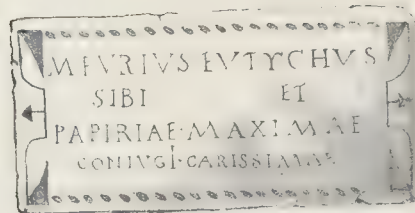 M FVRIVS EVTYCHVS
SIBI ET
PAPIRIAE·MAXIMAE
CONIVGI·CARISSIMAE